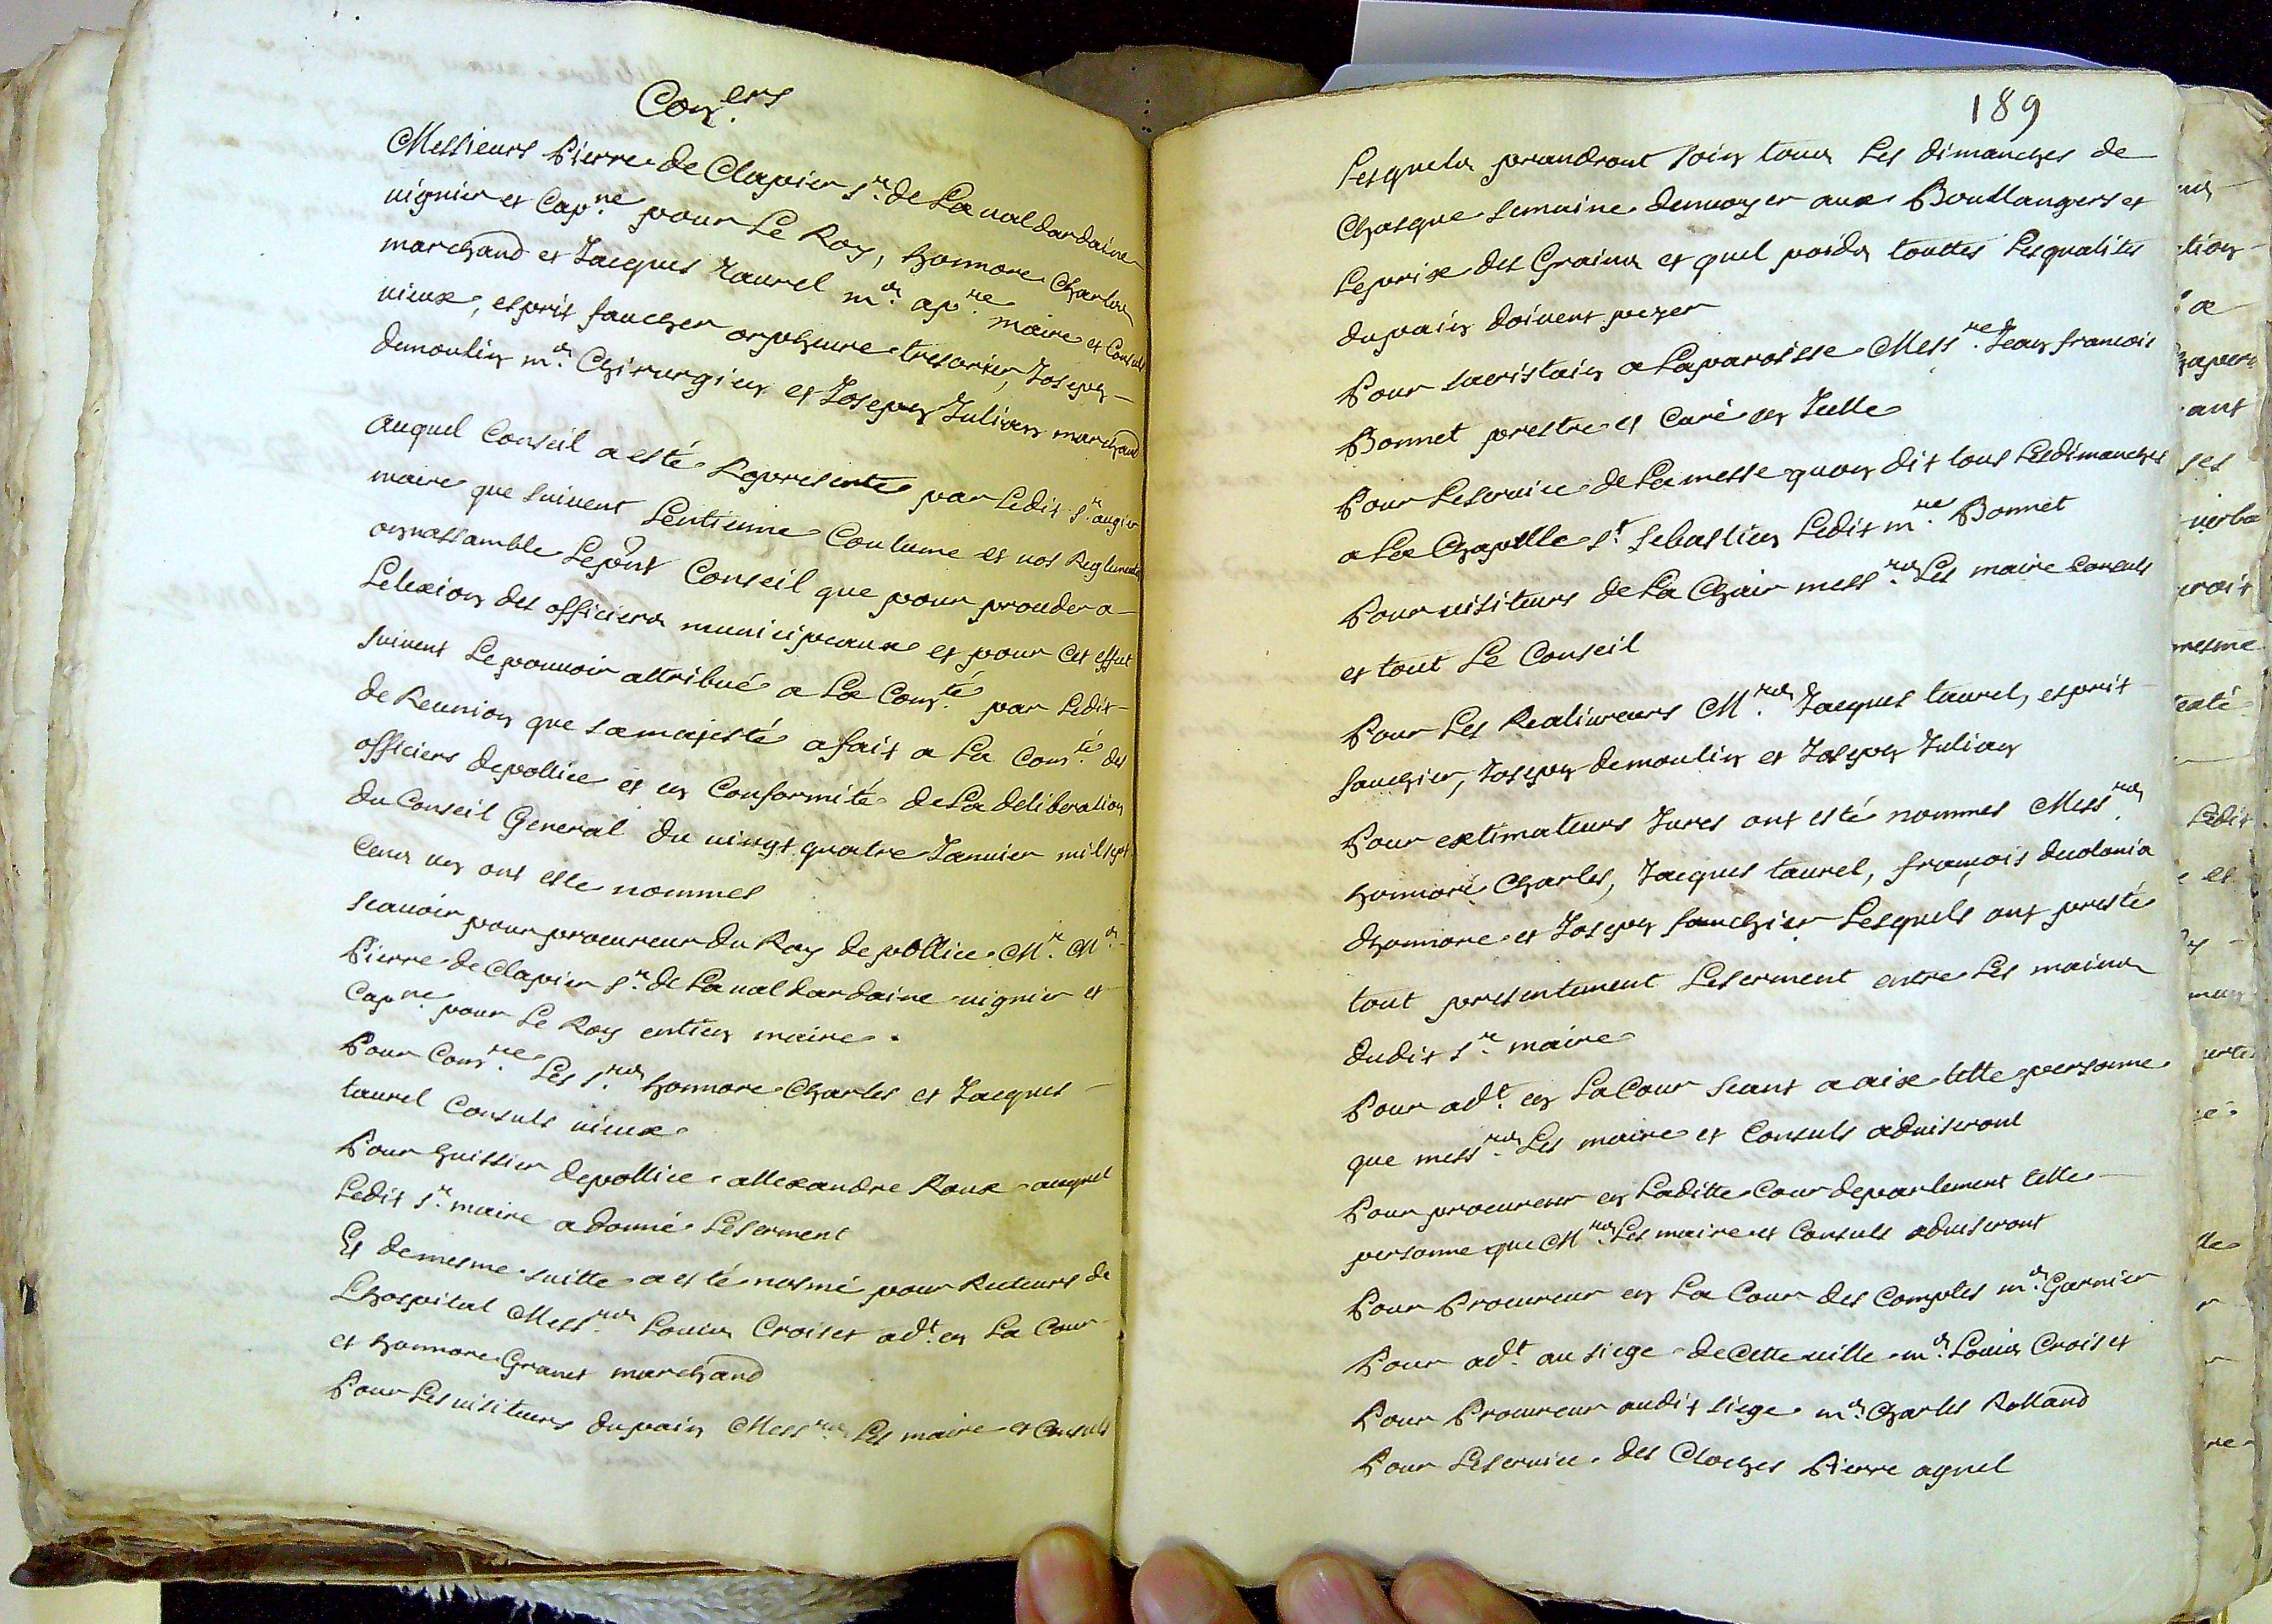 Con.ers
Messieurs Pierre de Clapier s.r de La ual dardaine
uignier et Cap.ne pour Le Roy, honnore Charles
marchand et Jacques Taurel m.e ap.re maire et Consuls
uieux, esprit fauchier orpheure tresorier, Joseph
demoulin m.e Chirurgien et Joseph Julien marchand
auquel Conseil a esté Representé par Ledit s.r augier
maire que suiuent Lentienne Coutume et nos Reglements
on nassamble Lepnt Conseil que pour prouder a
Lelexion des officiers municipeaux et pour Cet effet
suiuent Lepouuoir attribué a La Com.té par Ledit
de Reunion que samajesté a fait a La Com.té des
officiers depollice et en Conformité de La deliberation
du Conseil General du uingt quatre Januier mil sept
Cens un ont esté nommes
scauoir pour procureur du Roy depollice M.r M.e
Pierre de Clapier s.r de La ual dardaine uignier et
Cap.ne pour Le Roy entien maire.
Pour Com.re Les s.rs honnore Charles et Jacques
taurel Consuls uieux
Pour huissier depollice allexandre Roux auquel
Ledit s.r maire a donné Leserment
Et demesme suitte a esté nomé pour Recteurs de
Lhospital Mess.rs Louis Croiset ad.t en La Cour
et honnore Granet marchand
Pour Les uisiteurs dupain Mess.rs Les maire et Consuls
189
Lesquels prandront soin tous Les dimanches de
Chasque semaine denuoyer aux Boullangers et
Leprix des Grains et quel poids touttes Lesqualites
dupain doiuent pezer
Pour sacristain a Laparoisse Mess.re Jean francois
Bonnet prestre et Curé en Icelle
Pour Leseruice de La messe quon dit tous Lesdimanches
a La Chapelle s.t sebastien Ledit m.re Bonnet
Pour uisiteurs de La Chair mess.rs Les maire Consuls
et tout Le Conseil
Pour Les Realiureurs M.rs Jacques taurel, esprit
fauchier, Joseph demoulin et Joseph Julien
Pour extimateurs Jures ont esté nommes Mess.rs
honnoré Charles, Jacques taurel, françois
dhonnore et Joseph fauchier Lesquels ont presté
tout presentement Leserment entre Les mains
dudit s.r maire
Pour ad.t en La Cour seant a aix telle personne
que mess.rs Les maire et Consuls aduiseront
Pour procureur en Laditte Cour deparlement telle
personne que M.rs Les maire et Consuls aduiseront
Pour Procureur en La Cour des Comptes m.e Garnier
Pour ad.t au siege de Cette uille m.e Louis Croiset
Pour Procureur audit siege m.e Charles Rolland
Pour Leseruice des Cloches Pierre agnel